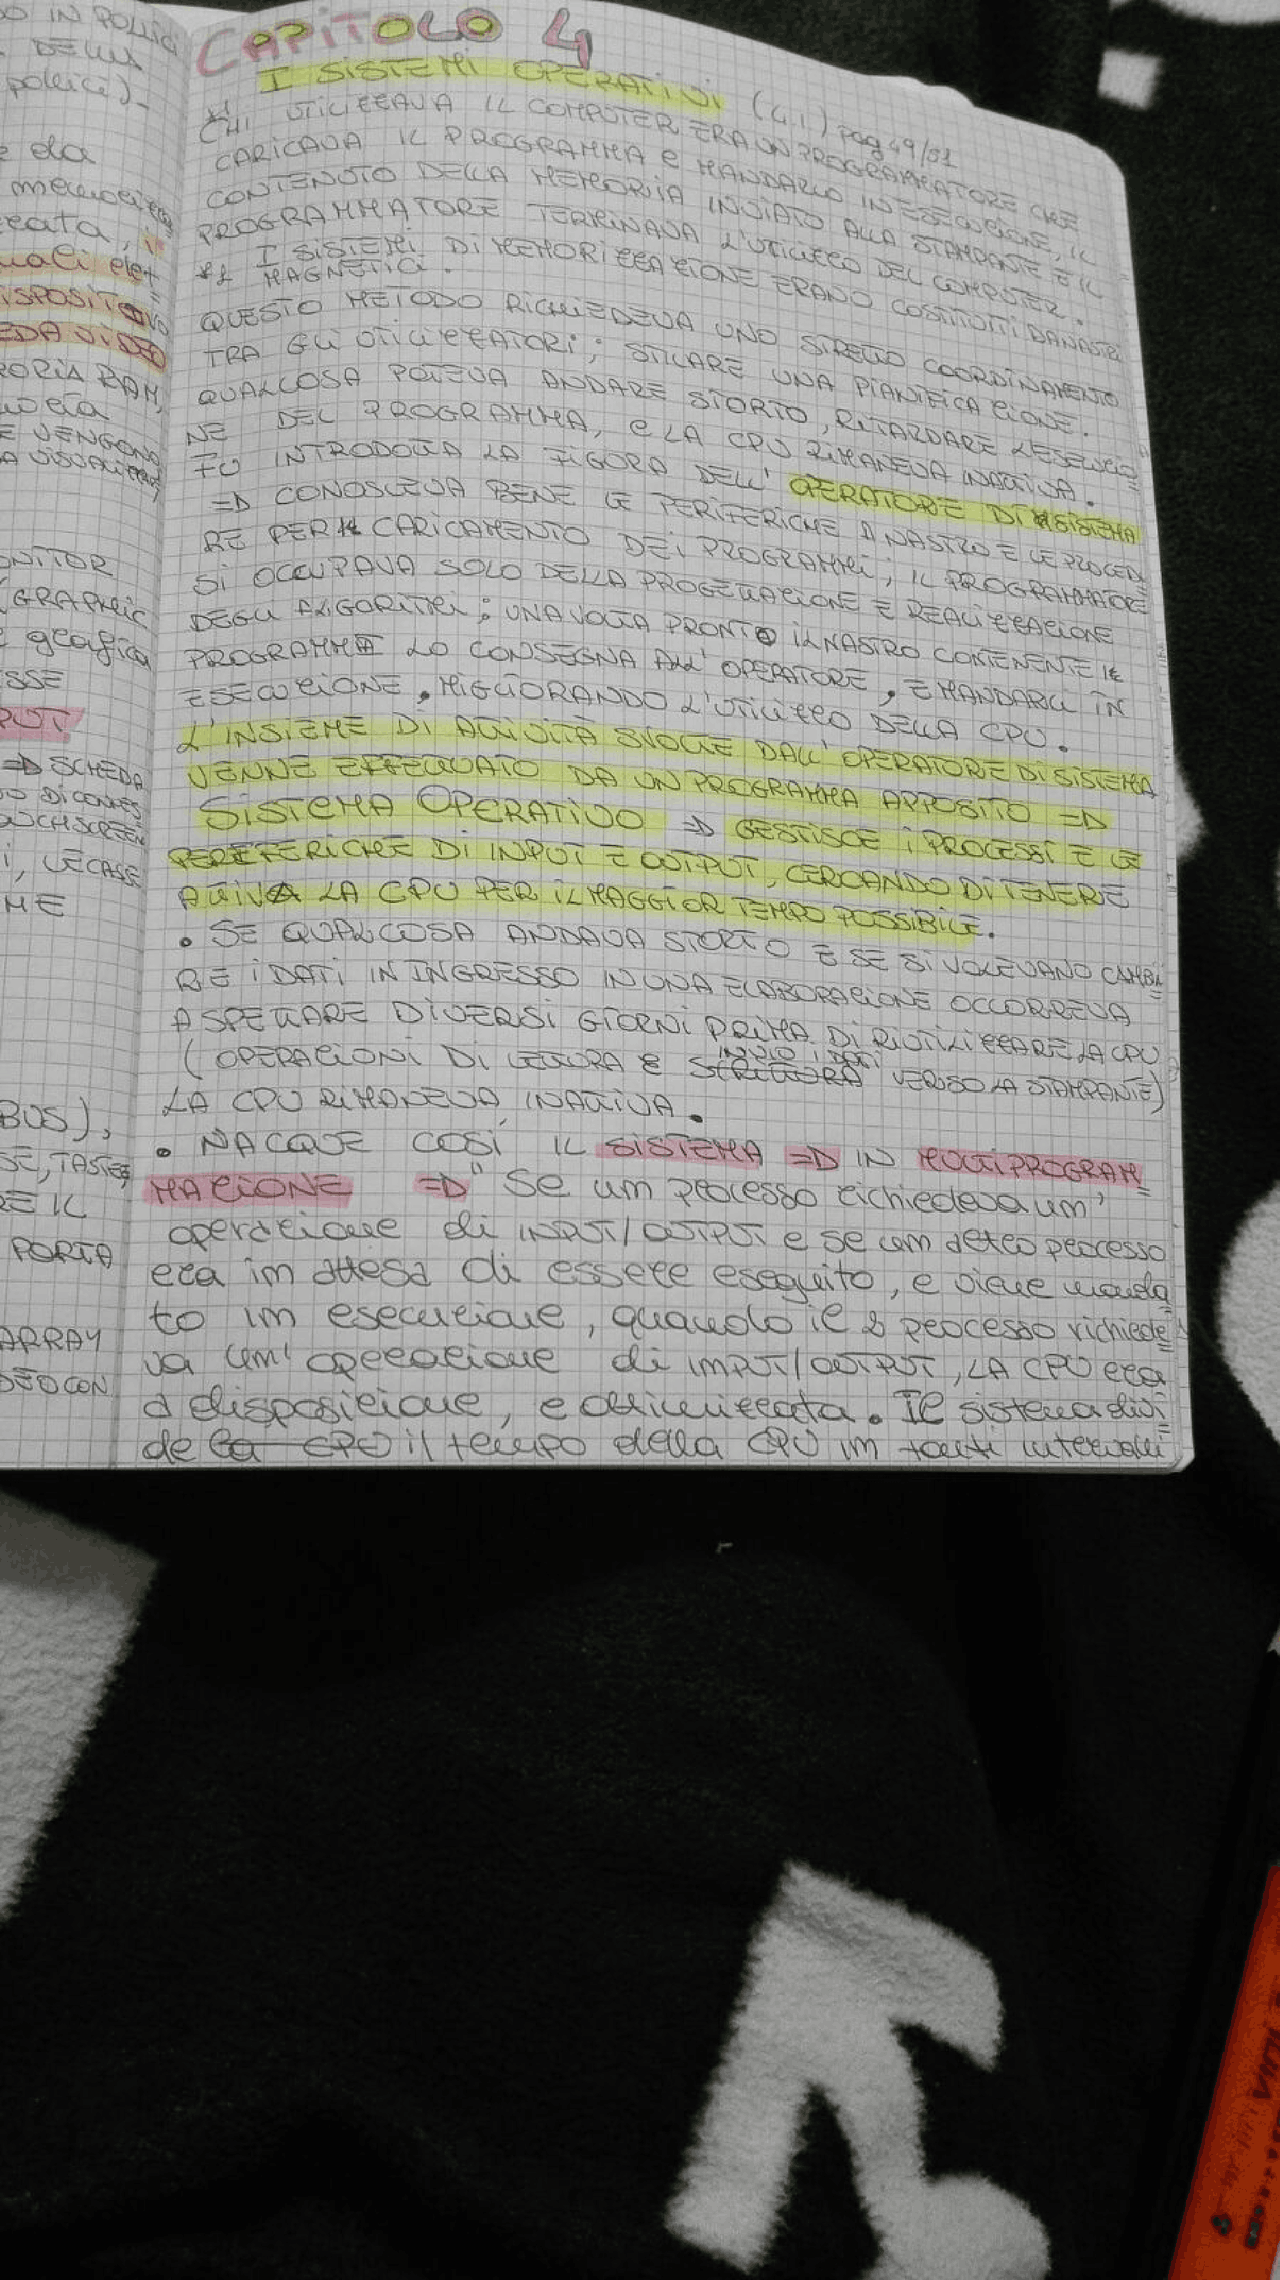 DO IN POLLICI
DELLA
pollici).
e da
meccanica
uali elet
DISPOSITIVO
EDA VIDEO
MORIA RAM,
E VENGONO
ONITOR
(GRAPHIC
e grafica
SSE
PUT
=D SCHEDA
TOUCHSCREEN
i, LE CASSE
ME
BUS),
SE, TASTIE
RE IL
PORTA
ARRAY
CAPITOLO 4
I SISTEMI OPERATIVI (4.1) pag 49/51
CHI UTILIZZAVA IL COMPUTER ERA UN PROGRAMMATORE CHE
CARICAVA IL PROGRAMMA e MANDARLO IN ESECUZIONE, IL
CONTENUTO DELLA MEMORIA INVIATO ALLA STAMPANTE E IL
PROGRAMMATORE TERMINAVA L'UTILIZZO DEL COMPUTER.
I SISTEMI DI MEMORIZZAZIONE ERANO COSTITUITI DA NASTRI
MAGNETICI.
QUESTO METODO RICHIEDEVA UNO STRETTO COORDINAMENTO
TRA GLI UTILIZZATORI; STILARE UNA PIANIFICAZIONE.
QUALCOSA POTEVA ANDARE STORTO, RITARDARE L'ESECUZIO
NE DEL PROGRAMMA, e LA CPU RIMANEVA INATTIVA.
FU INTRODOTTA LA FIGURA DELL' OPERATORE DI SISTEMA
=D CONOSCEVA BENE LE PERIFERICHE A NASTRO E LE PROCEDU
RE PER CARICAMENTO DEI PROGRAMMI; IL PROGRAMMATORE
SI OCCUPAVA SOLO DELLA PROGETTAZIONE E REALIZZAZIONE
DEGLI ALGORITMI; UNA VOLTA PRONTO IL NASTRO CONTENENTE IL
PROGRAMMA LO CONSEGNA ALL' OPERATORE, E MANDARLI IN
ESECUZIONE, MIGLIORANDO L'UTILIZZO DELLA CPU.
L'INSIEME DI ATTIVITÀ SVOLTE DALL'OPERATORE DI SISTEMA
VENNE EFFETTUATO DA UN PROGRAMMA APPOSITO =D
SISTEMA OPERATIVO =D GESTISCE I PROCESSI E LE
PERIFERICHE DI INPUT E OUTPUT, CERCANDO DI TENERE
ATTIVA LA CPU PER IL MAGGIOR TEMPO POSSIBILE.
• SE QUALCOSA ANDAVA STORTO E SE SI VOLEVANO CAMBIA
RE I DATI IN INGRESSO IN UNA ELABORAZIONE OCCORREVA
ASPETTARE DIVERSI GIORNI PRIMA DI RIUTILIZZARE LA CPU
(OPERAZIONI DI LETTURA E INVIO I DATI VERSO LA STAMPANTE)
LA CPU RIMANEVA INATTIVA.
• NACQUE COSÌ IL SISTEMA =D IN MULTIPROGRAM
MAZIONE =D " Se un processo richiedeva un'
operazione di INPUT/OUTPUT e se un altro processo
era in attesa di essere eseguito, e viene manda
to in esecuzione, quando il 2 processo richiede
va un' operazione di IMPUT/OUTPUT, LA CPU era
a disposizione, e ottimizzata. Il sistema divi
de la CPU il tempo della CPU in tanti intervalli